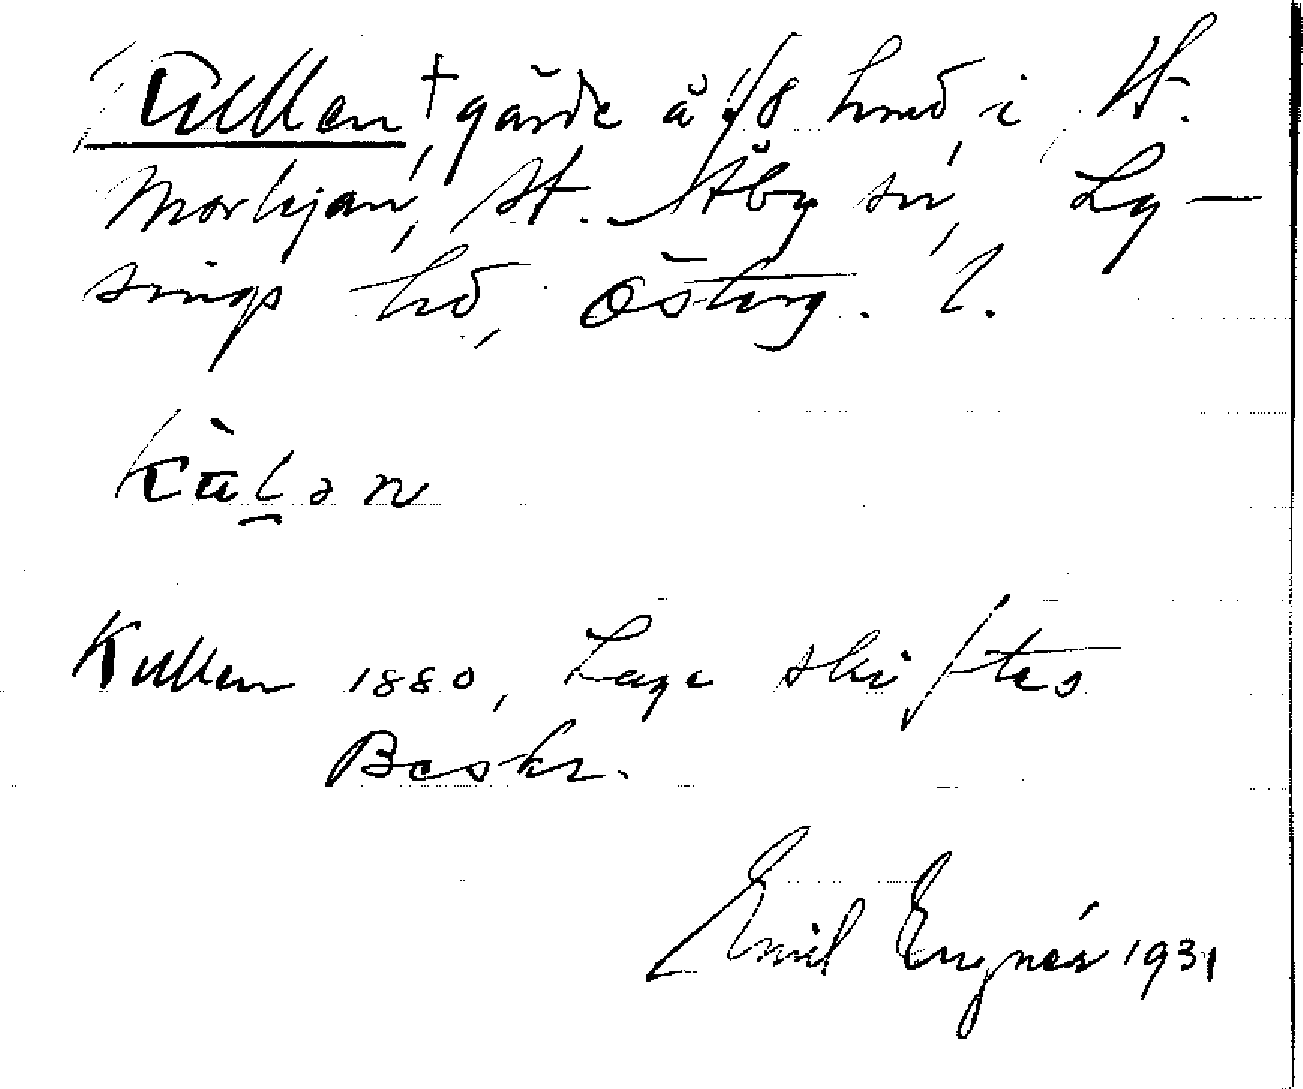 Kullen †, gärde å 1/8 hmd, i St.
Morkjan, St. Åby sn, Ly-
sings hd, Österg. l.
kùlən
Kullen 1880, Laga skiftes
Beskr.
Emil Engnér 1931